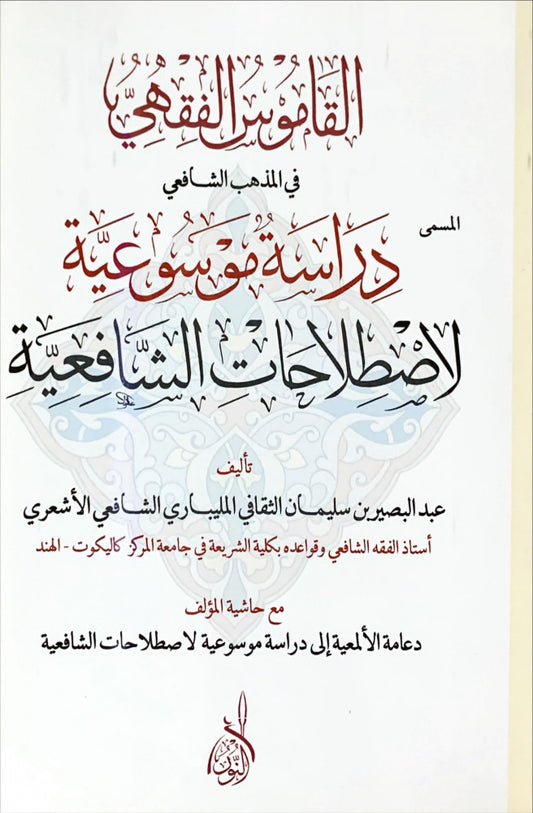 القاموس الفقهي
في المذهب الشافعي
المسمى
دراسة موسوعية
لاصطلاحات الشافعية
تأليف
عبد البصير بن سليمان الثقافي المليباري الشافعي الأشعري
أستاذ الفقه الشافعي وقواعده بكلية الشريعة في جامعة المركز كاليكوت - الهند
مع حاشية المؤلف
دعامة الألمعية إلى دراسة موسوعية لاصطلاحات الشافعية
النور